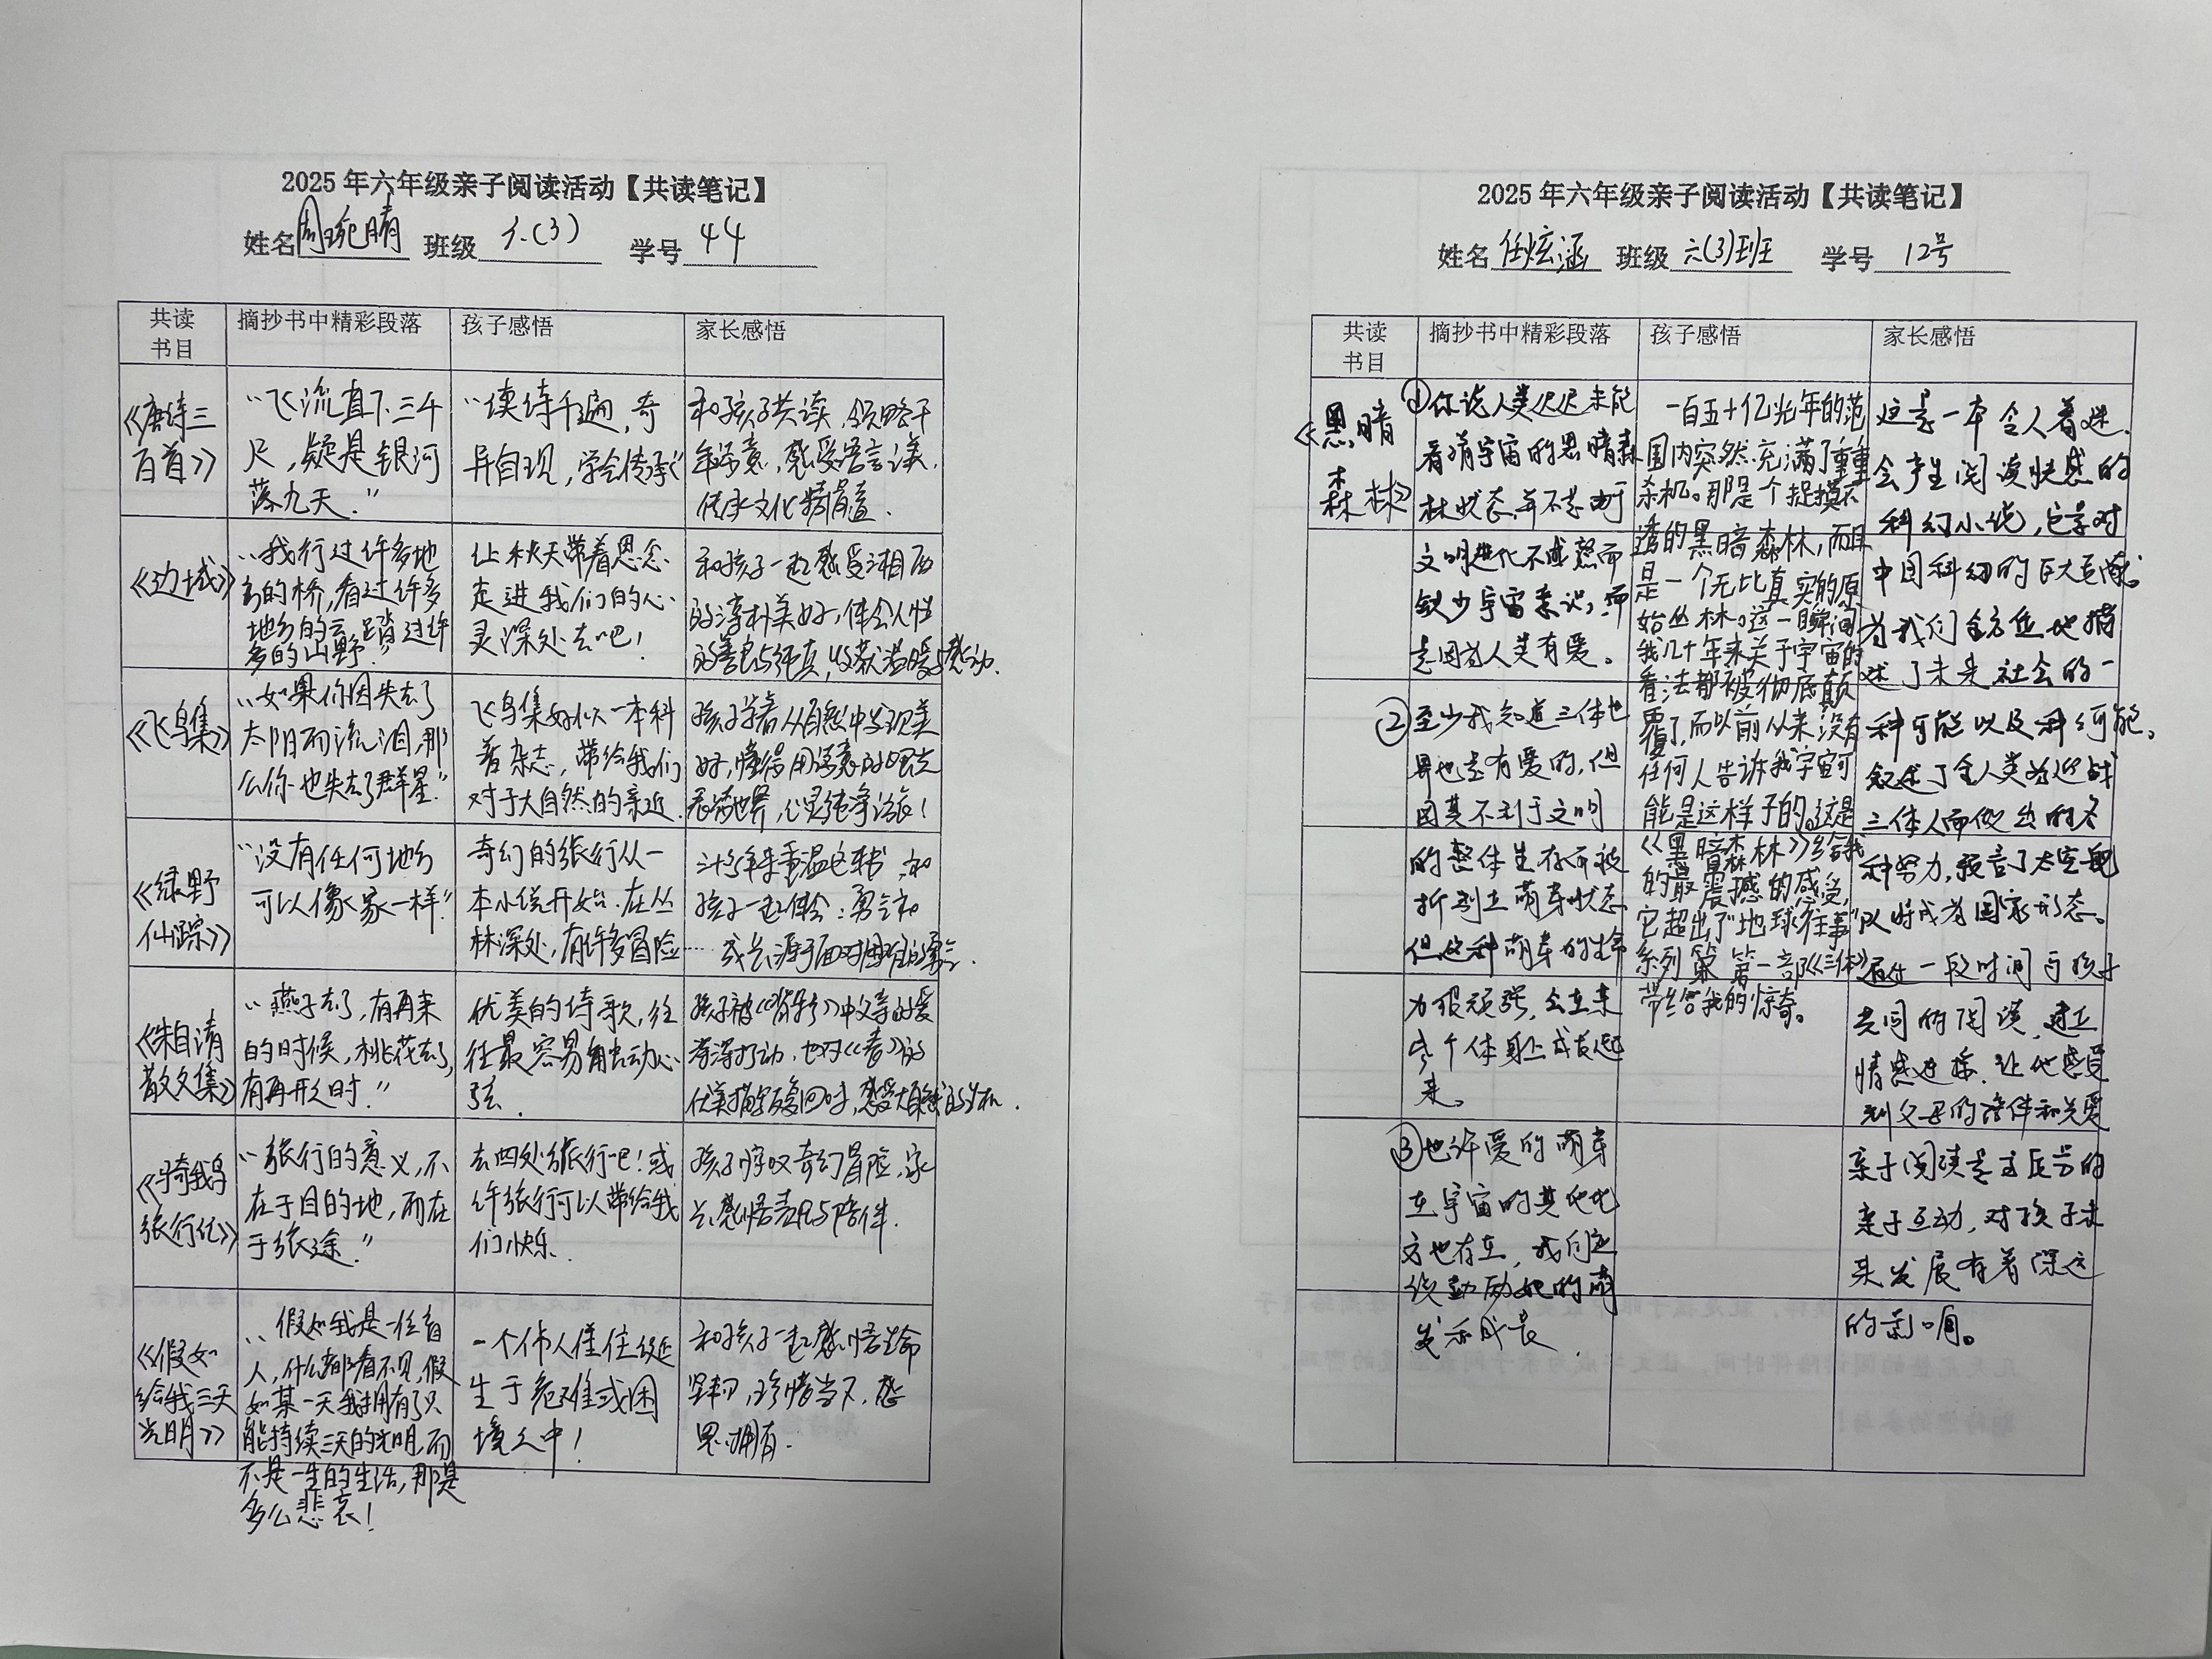 2025年六年级亲子阅读活动【共读笔记】
姓名周琬晴 班级六(3) 学号44
共读
书目
摘抄书中精彩段落
孩子感悟
家长感悟
《唐诗三
百首》
“飞流直下三千
尺,疑是银河
落九天.”
“读诗千遍,奇
异自现,学会传承
和孩子共读,领略千
年诗意,感受语言之美.
传承文化精髓.
《边城》
“我行过许多地
方的桥,看过许多
地方的云,踏过许
多的山野.”
让秋天带着思念
走进我们的心
灵深处去吧!
和孩子一起感受湘西
的淳朴美好,体会人性
的善良与纯真,收获温暖与感动.
《飞鸟集》
“如果你因失去了
太阳而流泪,那
么你也失去了群星.”
飞鸟集好似一本科
普杂志,带给我们
对于大自然的亲近.
孩子学着从自然中发现美
好,懂得用诗意的眼光
看待世界,心灵纯净治愈!
《绿野
仙踪》
“没有任何地方
可以像家一样.”
奇幻的旅行从一
本小说开始.在丛
林深处,有许多冒险……
三十年来重温这书,和
孩子一起体会:勇气和
成长源于面对困难的勇气.
《朱自清
散文集》
“燕子去了,有再来
的时候,桃花去了,
有再开时.”
优美的诗歌,往
往最容易触动心
弦.
孩子被《背影》中父亲的爱
深深打动,也对《春》的
优美描写回味,感受大自然的生机.
《骑鹅
旅行记》
“旅行的意义,不
在于目的地,而在
于旅途.”
去四处旅行吧!或
许旅行可以带给我
们快乐.
孩子惊叹奇幻冒险,家
长感悟责任与陪伴.
《假如
给我三天
光明》
“假如我是一位盲
人,什么都看不见,假
如某一天我拥有了只
能持续三天的光明,而
不是一生的生活,那是
多么悲哀!
一个伟人往往诞
生于危难或困
境之中!
和孩子一起感悟生命
坚韧,珍惜当下,感
恩拥有.
2025年六年级亲子阅读活动【共读笔记】
姓名任炫涵 班级六(3)班 学号12号
共读
书目
摘抄书中精彩段落
孩子感悟
家长感悟
《黑暗
森林》
①你说人类迟迟未能
看清宇宙的黑暗森
林状态,并不是由于
文明进化不成熟而
缺少宇宙意识,而
是因为人类有爱。
②至少我知道三体世
界也是有爱的,但
因其不利于文明
的整体生存而被
抑制在萌芽状态,
但这种萌芽的生命
力很顽强,会在某
些个体身上成长起
来。
③也许爱的萌芽
在宇宙的其他地
方也存在,我们应
该鼓励她的萌
发和成长.
一百五十亿光年的范
围内突然充满了重重
杀机。那是个捉摸不
透的黑暗森林,而且
是一个无比真实的原
始丛林。这一瞬间
我几十年来关于宇宙的
看法都被彻底颠
覆了,而以前从来没有
任何人告诉我宇宙可
能是这样子的。这是
《黑暗森林》给我
的最震撼的感受,
它超出了“地球往事”
系列第一部《三体》
带给我的惊奇。
这是一本令人着迷.
会产生阅读快感的
科幻小说,它是对
中国科幻的巨大贡献。
为我们全方位地描
述了未来社会的一
种可能以及种种可能.
叙述了全人类为迎战
三体人而做出的各
种努力,预言了太空舰
队将成为国家形态。
通过一段时间与孩子
共同的阅读,建立
情感连接.让他感受
到父母的陪伴和关爱
亲子阅读是高质量的
亲子互动,对孩子未
来发展有着深远
的影响。